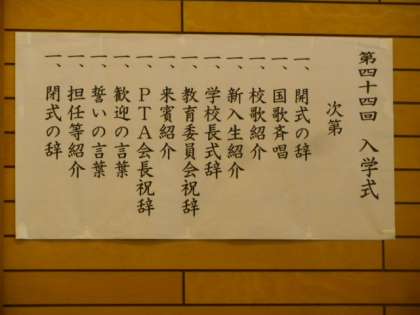 第四十四回　入学式
次第
一、開式の辞
一、国歌斉唱
一、校歌紹介
一、新入生紹介
一、学校長式辞
一、教育委員会祝辞
一、来賓紹介
一、ＰＴＡ会長祝辞
一、歓迎の言葉
一、誓いの言葉
一、担任等紹介
一、閉式の辞